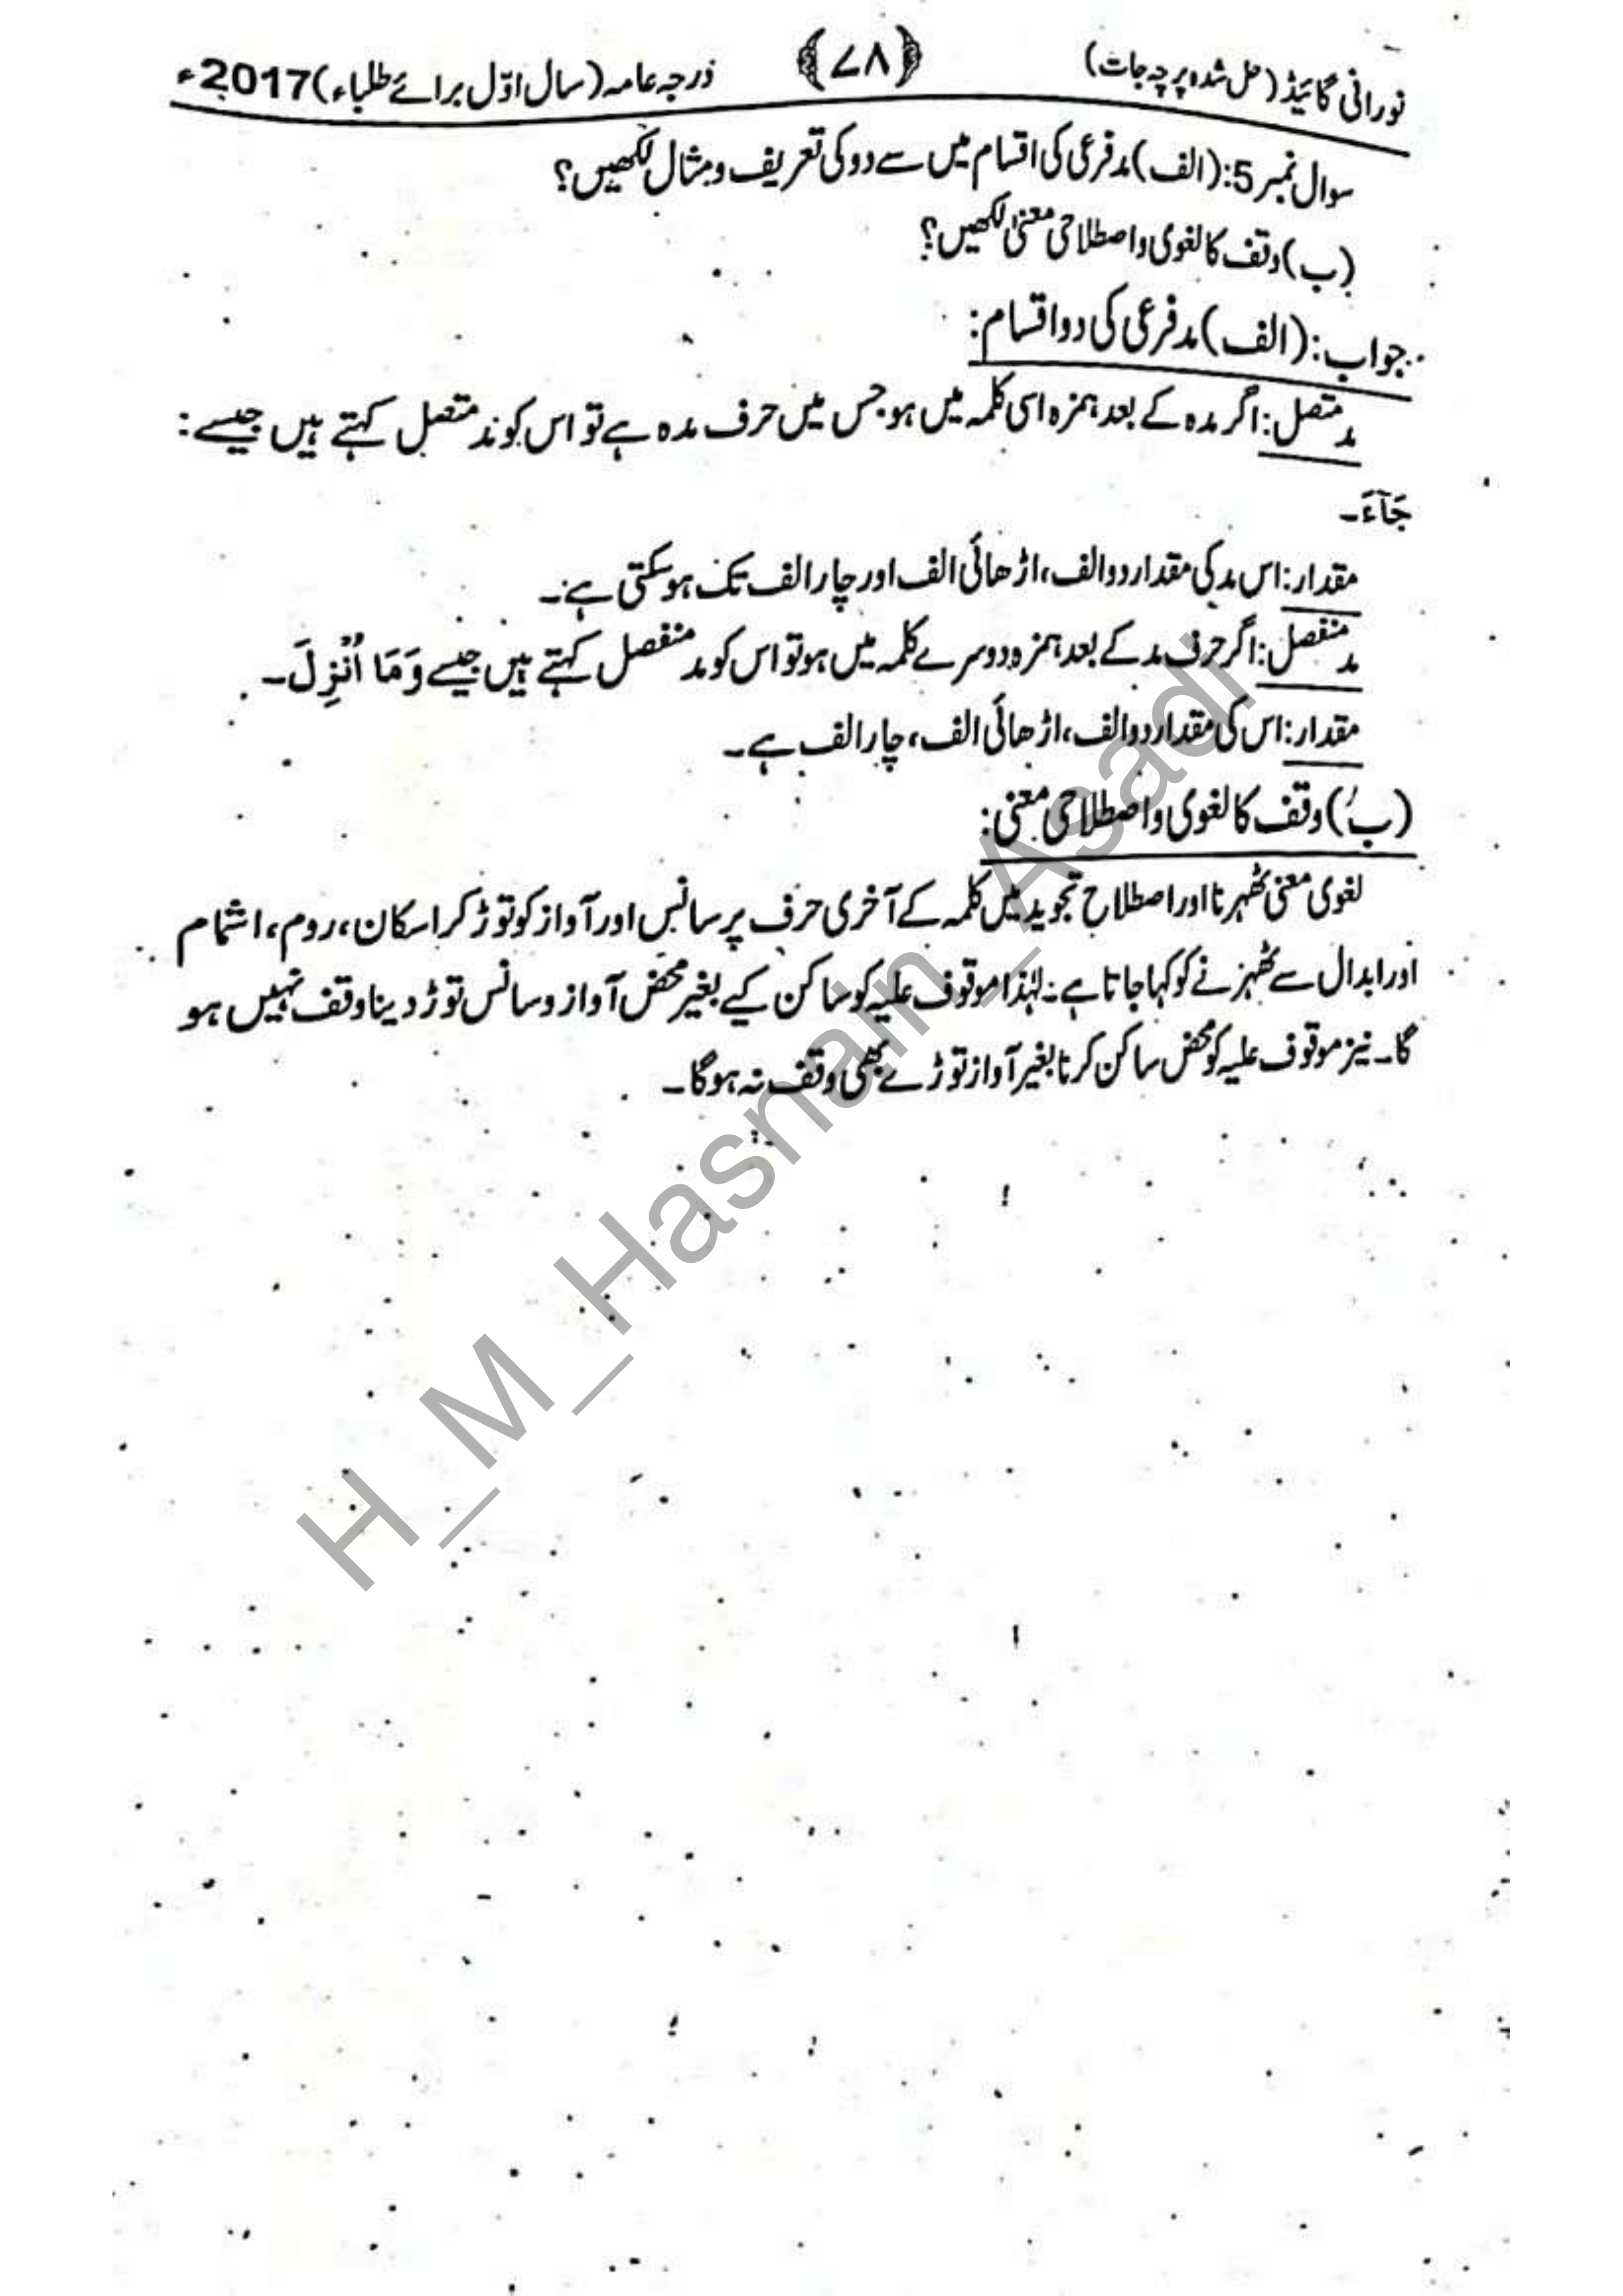 نورانی گائیڈ (حل شدہ پرچہ جات) ﴿۷۸﴾ درجہ عامہ (سال اوّل برائے طلباء) 2017ء
سوال نمبر 5: (الف) مد فرعی کی اقسام میں سے دو کی تعریف و مثال لکھیں؟
(ب) وقف کا لغوی و اصطلاحی معنی لکھیں؟
جواب: (الف) مد فرعی کی دو اقسام:
مد متصل: اگر مدہ کے بعد ہمزہ اسی کلمہ میں ہو جس میں حرف مدہ ہے تو اس کو مد متصل کہتے ہیں جیسے:
جَآءَ۔
مقدار: اس مد کی مقدار دو الف، اڑھائی الف اور چار الف تک ہو سکتی ہے۔
مد منفصل: اگر حرف مد کے بعد ہمزہ دوسرے کلمہ میں ہو تو اس کو مد منفصل کہتے ہیں جیسے وَمَا اُنْزِلَ۔
مقدار: اس کی مقدار دو الف، اڑھائی الف، چار الف ہے۔
(ب) وقف کا لغوی و اصطلاحی معنی:
لغوی معنی ٹھہرنا اور اصطلاح تجوید میں کلمہ کے آخری حرف پر سانس اور آواز کو توڑ کر اسکان، روم، اشمام
اور ابدال سے ٹھہرنے کو کہا جاتا ہے۔ لہٰذا موقوف علیہ کو ساکن کیے بغیر محض آواز و سانس توڑ دینا وقف نہیں ہو
گا۔ نیز موقوف علیہ کو محض ساکن کرنا بغیر آواز توڑے بھی وقف نہ ہوگا۔
H_M_Hasnain_Asadi